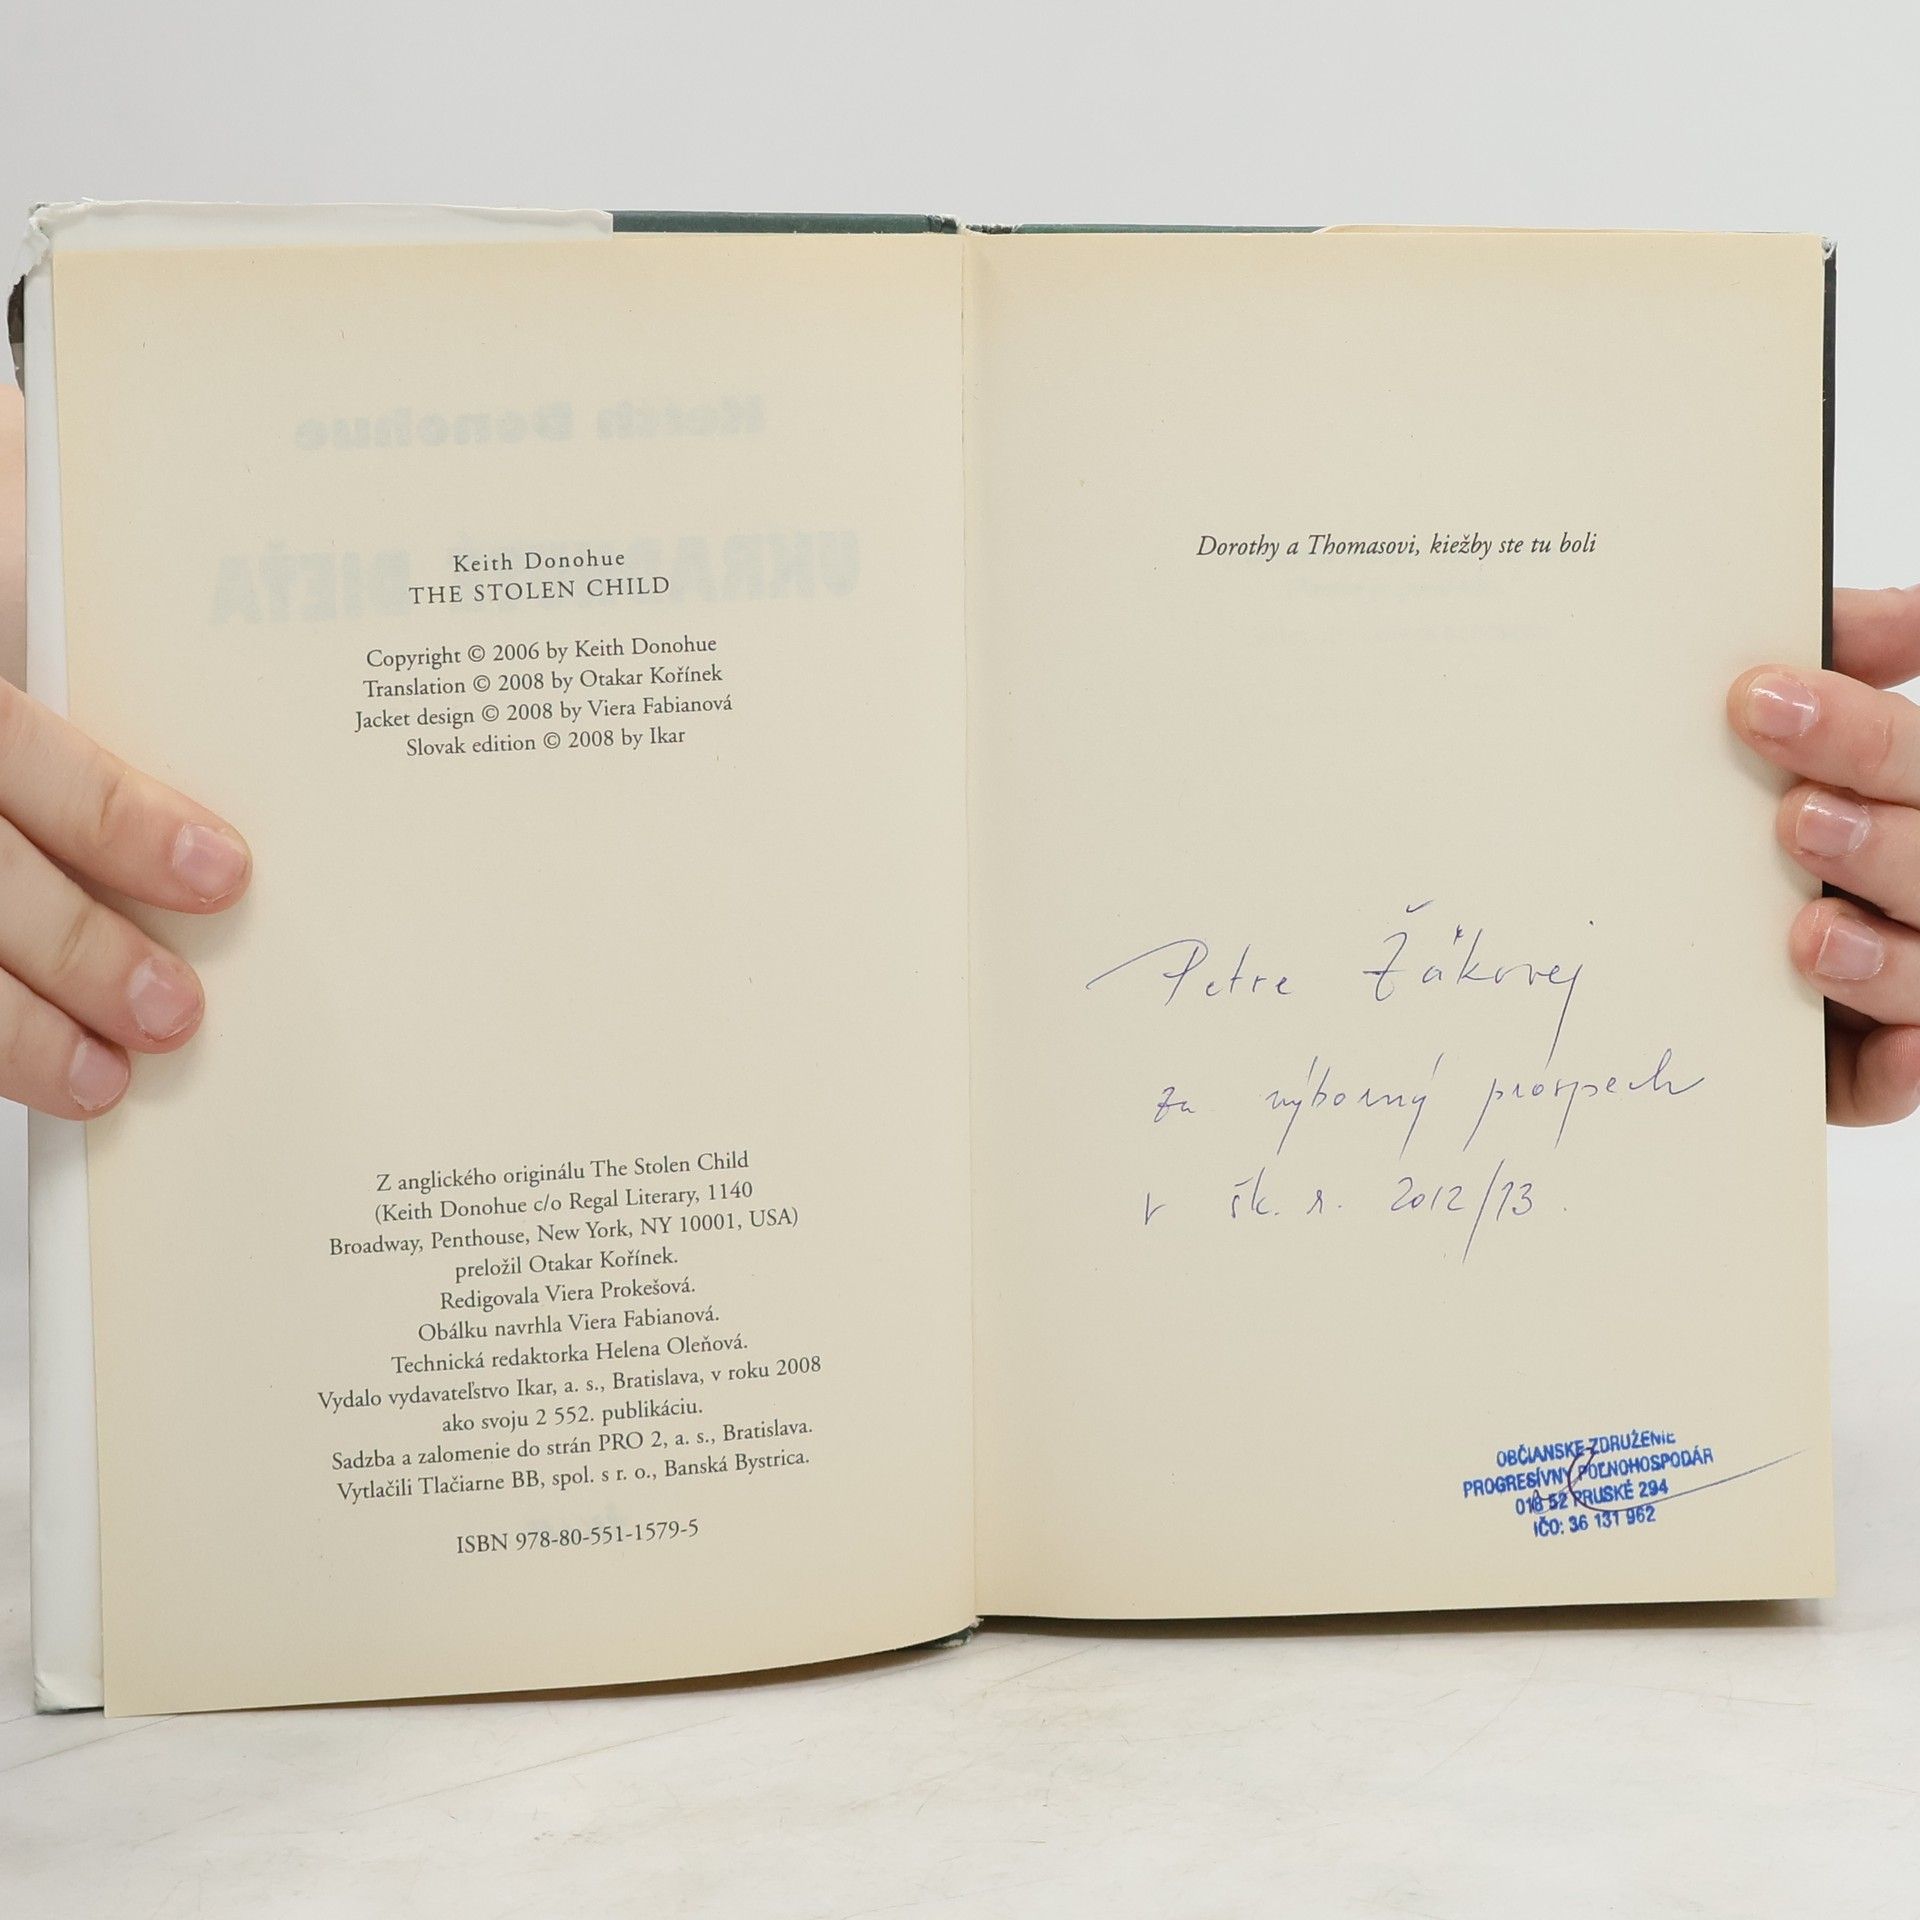 Keith Donohue
THE STOLEN CHILD
Copyright © 2006 by Keith Donohue
Translation © 2008 by Otakar Kořínek
Jacket design © 2008 by Viera Fabianová
Slovak edition © 2008 by Ikar
Z anglického originálu The Stolen Child
(Keith Donohue c/o Regal Literary, 1140
Broadway, Penthouse, New York, NY 10001, USA)
preložil Otakar Kořínek.
Redigovala Viera Prokešová.
Obálku navrhla Viera Fabianová.
Technická redaktorka Helena Oleňová.
Vydalo vydavateľstvo Ikar, a. s., Bratislava, v roku 2008
ako svoju 2 552. publikáciu.
Sadzba a zalomenie do strán PRO 2, a. s., Bratislava.
Vytlačili Tlačiarne BB, spol. s r. o., Banská Bystrica.
ISBN 978-80-551-1579-5
Dorothy a Thomasovi, kiežby ste tu boli
Petre Žákovej
za výborný prospech
v šk. r. 2012/13.
OBČIANSKE ZDRUŽENIE
PROGRESÍVNY POĽNOHOSPODÁR
018 52 PRUSKÉ 294
IČO: 36 131 962